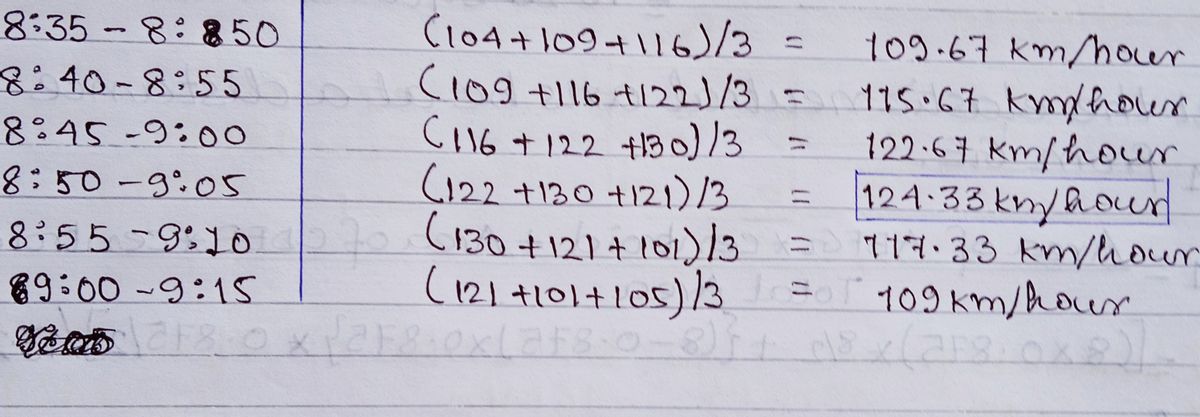 8:35 - 8:50 (104+109+116)/3 = 109.67 km/hour
8:40-8:55 (109+116+122)/3 = 115.67 km/hour
8:45-9:00 (116+122+130)/3 = 122.67 km/hour
8:50-9:05 (122+130+121)/3 = 124.33 km/hour
8:55-9:10 (130+121+101)/3 = 117.33 km/hour
9:00-9:15 (121+101+105)/3 = 109 km/hour